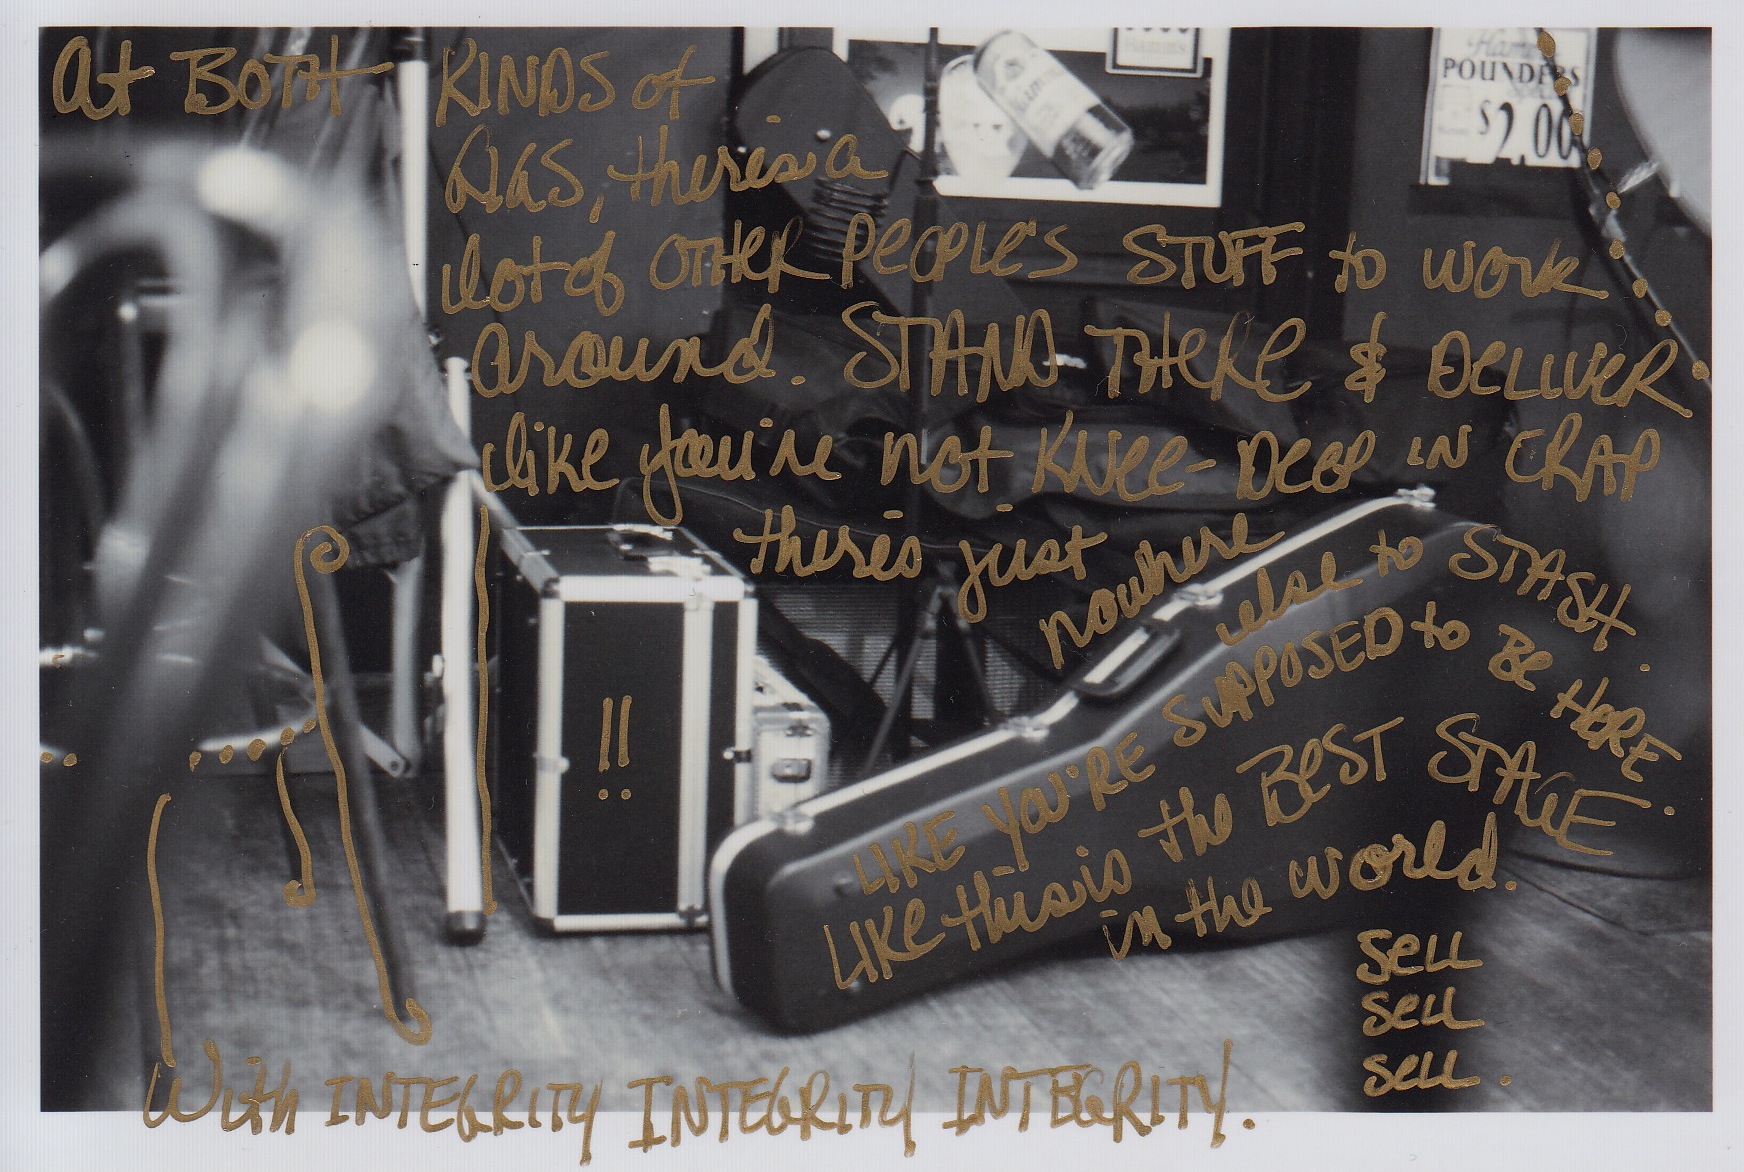 At BOTH KINDS of
GIGS, there's a
lot of OTHER PEOPLE'S STUFF to work
around. STAND THERE & DELIVER
like you're not KNEE-DEEP IN CRAP
there's just
nowhere
else to STASH.
LIKE YOU'RE SUPPOSED to BE HERE.
LIKE this is the BEST STAGE
in the world.
SELL
SELL
SELL.
With INTEGRITY INTEGRITY INTEGRITY.
!!
Hamm's
POUNDERS
$2.00